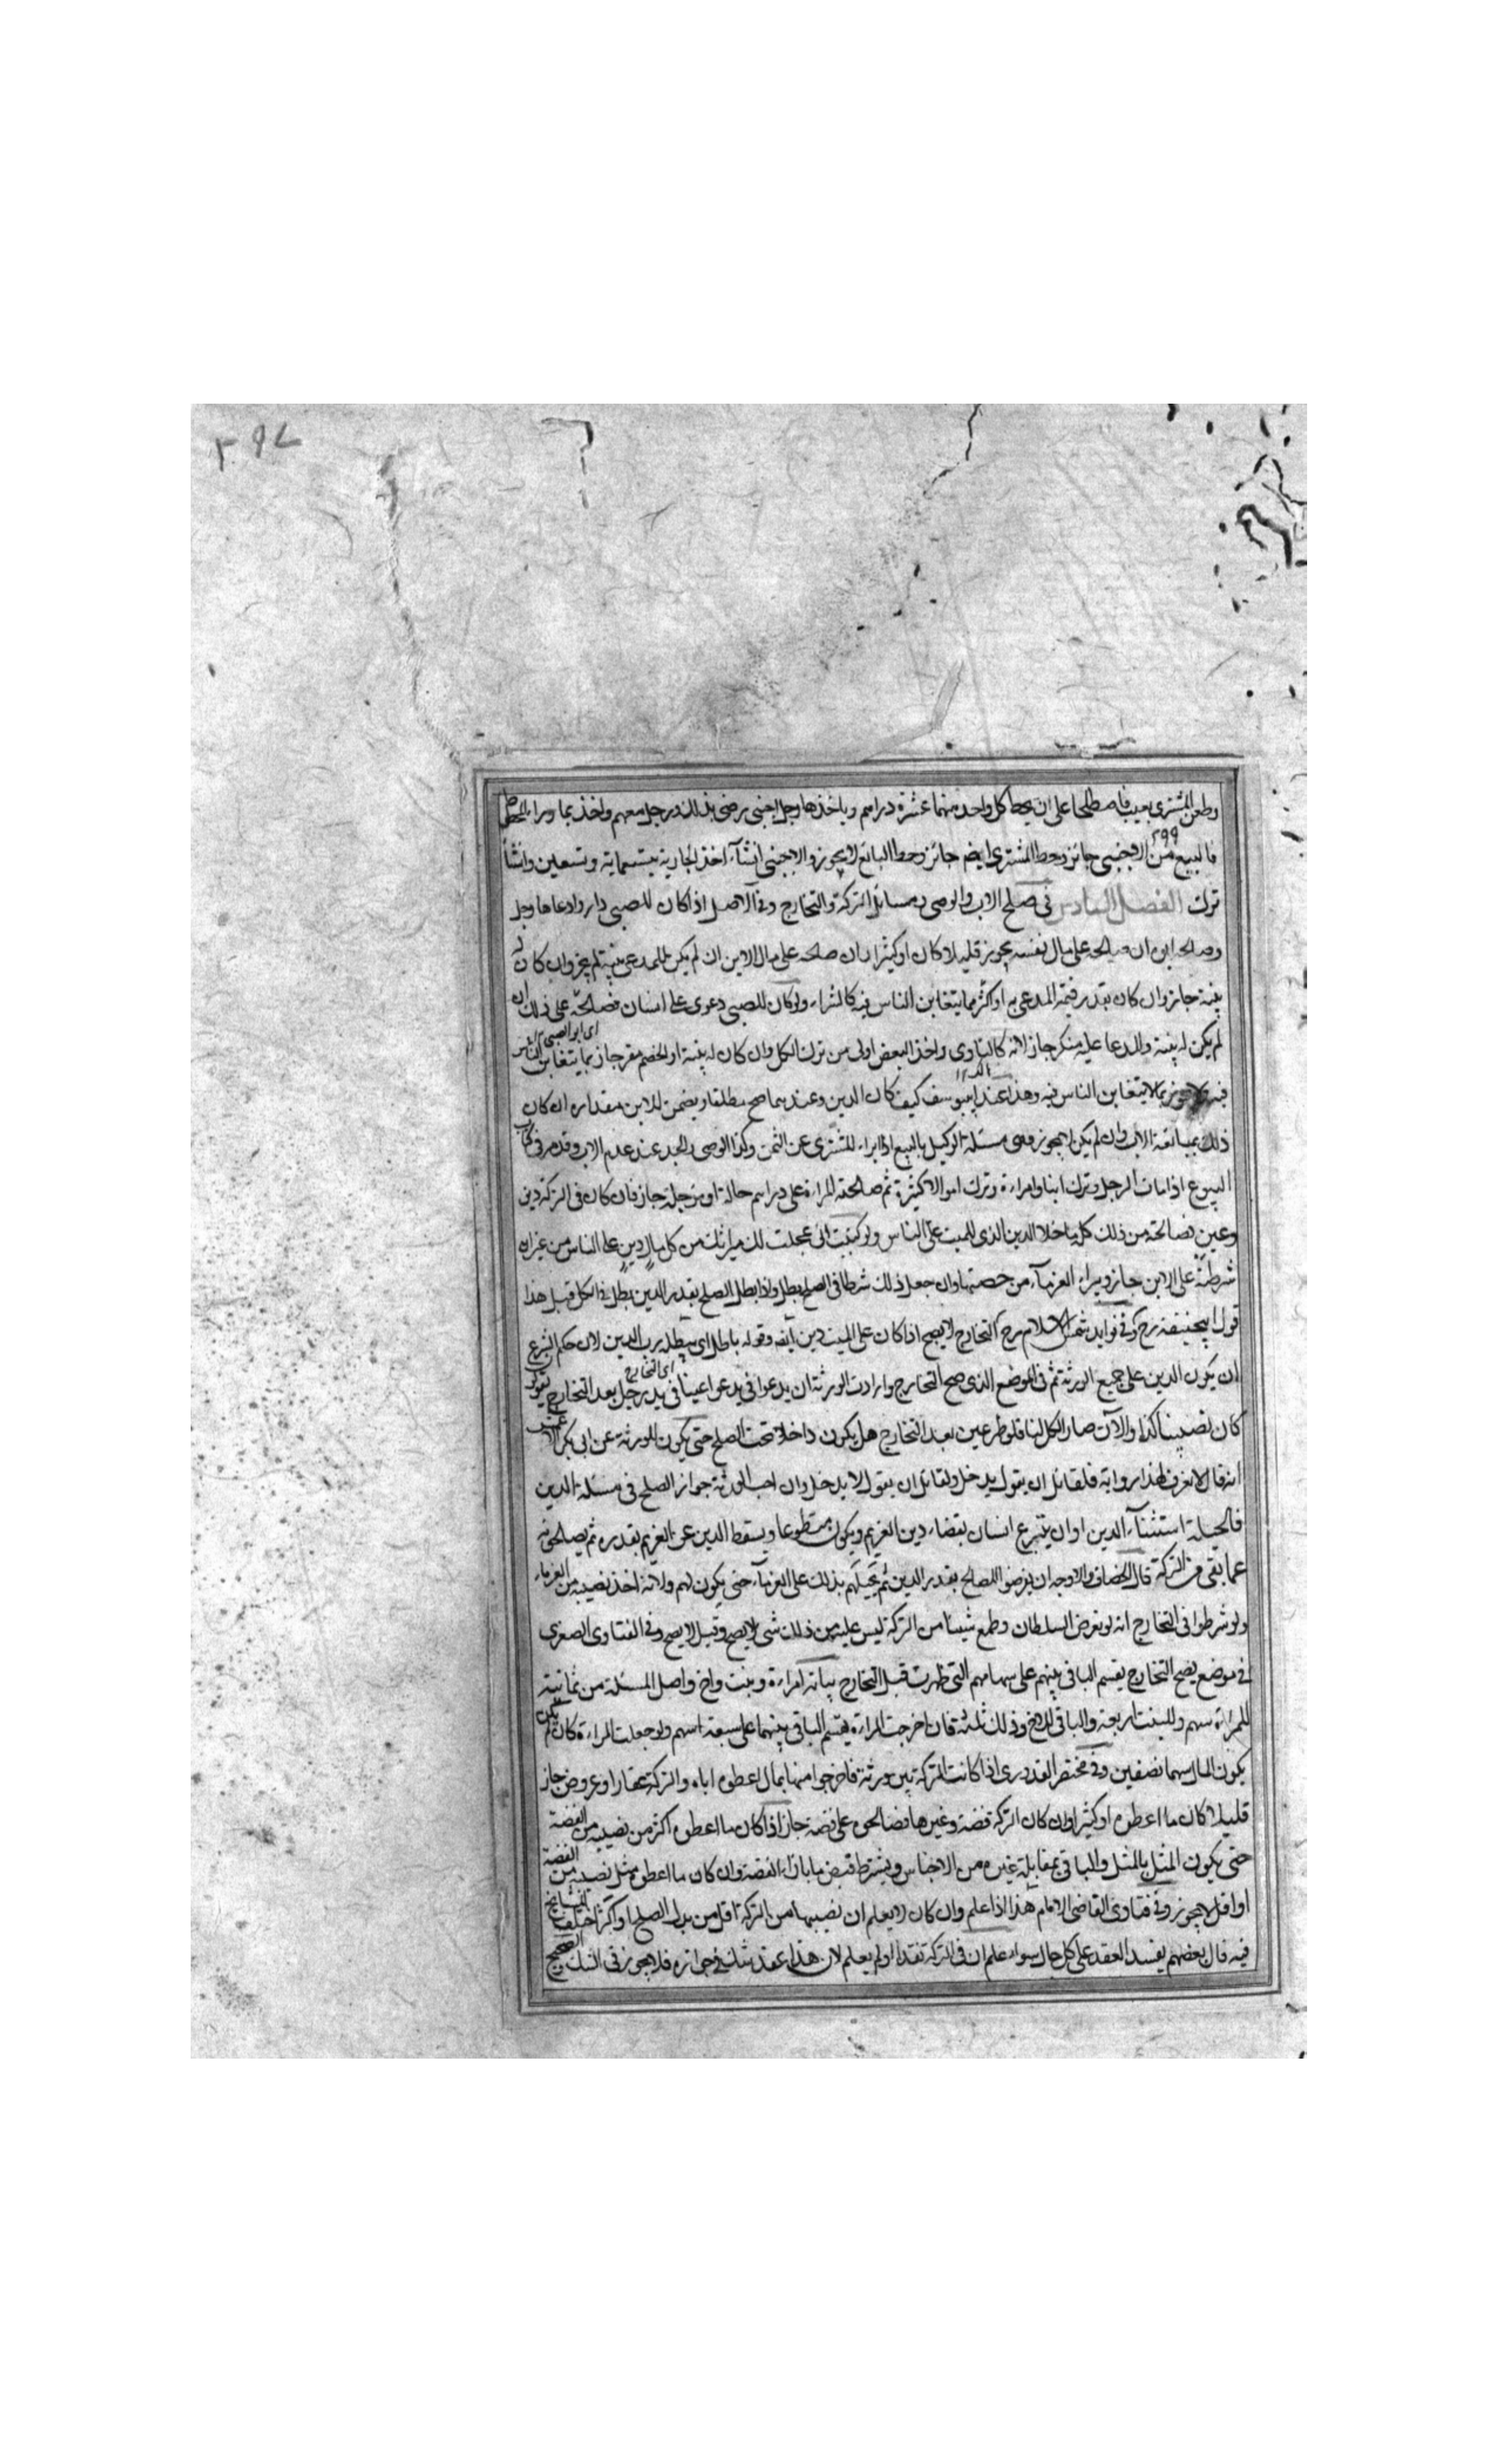 ٣٩٧
وطعن المشتري بعيب فاصطلحا على ان يحط كل واحد منهما عشرة دراهم وياخذها رجل اجنبي رضي بذلك رجل معهم واخذ بما وراء المحط
٢٩٩
فالبيع من الاجنبي جائز وحط المشتري ايضم جائز وحط البائع لا يجوز والاجنبي انشآء اخذ الجارية بتسعماية وتسعين وانشآ
ترك الفصل السادس في صلح الاب والوصي ومسائل التركة والتخارج وفي الاصل اذا كان للصبي دار وادعاها رجل
وصالحه ابوه ان صالحه على مال نفسه يجوز قليلا كان او كثيرا وان صالحه على مال الابن ان لم يكن للمدعي بينة لم يجز وان كان له
بينة جاز وان كان بقدر قيمة المدعى به او اكثر مما يتغابن الناس فيه كالشراء ولو كان للصبي دعوى على انسان فصالحه على ذلك ان
اى ابو الصبي
لم يكن له بينة والمدعا عليه منكر جاز لانه واخذ البعض اولى من ترك الكل وان كان له بينة او الخصم مقر جاز بما يتغابن الناس
فيه ولا يجوز بما لا يتغابن الناس فيه وهذا عند ابيوسف كيف كان الدين وعندهما صح مطلقا ويضمن للابن مقداره ان كان
ذلك بمبايعة الاب وان لم يكن لا يجوز وهي مسئلة الوكيل بالبيع اذا ابراء المشتري عن الثمن وكذا الوصي والجد عند عدم الاب وقد مر في كتاب
البيوع اذا مات الرجل وترك ابنا وامراءة وترك اموالا كثيرة ثم صالحته المراءة على دراهم حالة او مؤجلة جاز فان كان في التركة دين
وعين فصالحته من ذلك كل ما خلا الدين الذي للميت على الناس ولو كتبت انى عجلت لك ميراثك من كل مال دين على الناس من غير ان
شرطته على الابن جاز ويبراء الغرمآء من حصتها وان جعل ذلك شرطا في الصلح بطل واذا بطل الصلح بقدر الدين بطل في الكل قيل هذا
قول ابيحنيفة رح وفي فوايد شمس الاسلام رح التخارج لا يصح اذا كان على الميت دين وقوله باطل اى يبطله رب الدين لان حكم الشرع
ان يكون الدين على جميع الورثة ثم في الموضع الذي صح التخارج وارادت الورثة ان يدعوا عينا في يد رجل بعد التخارج يقولون
اى التخارج
كان نصيبنا كذا والآن صار الكل لنا فلو ظهر عين بعد التخارج هل يكون داخلا تحت الصلح حتى يكون للورثة عن ابي بكر
انه قال لا نعرف لهذا رواية فلقائل ان يقول يدخل ولقائل ان يقول لا يدخل وان احب الورثة جواز الصلح في مسئلة الدين
فالحيلة استثنآء الدين او ان يتبرع انسان بقضاء دين الغريم ويكون متطوعا ويسقط الدين عن الغريم بقدره ثم يصالحونه
عما بقي من التركة قال الخصاف والاوجه ان يقرضوا المصالح بقدر الدين ثم يحيلهم بذلك على الغرمآء حتى يكون لهم ولانه اخذ نصيبه من الغرماء
ولو شرطوا في التخارج انه لو تعرض السلطان وطمع شيئا من التركة ليس عليه من ذلك شي لا يصح وقيل لا يصح وفي الفتاوى الصغرى
في موضع يصح التخارج يقسم الباقي بينهم على سهامهم التى ظهرت قبل التخارج بيانه امراءة وبنت واخ واصل المسئلة من ثمانية
للمراءة سهم وللبنت اربعة والباقي للاخ وذلك ثلثة فان اخرجت المراءة يقسم الباقي بينهما على سبعة اسهم ولو جعلت المراءة كان لم تكن
يكون المال سهما نصفين وفي مختصر القدوري اذا كانت التركة بين ورثة فاخرجوا منها بمال اعطوه اياه والتركة عقار او عروض جاز
قليلا كان ما اعطوه او كثيرا وان كان التركة فضة وغيرها فصالحوه على فضة جاز اذا كان ما اعطوه اكثر من نصيبه من الفضة
حتى يكون المثل بالمثل والباقي بمقابلة غيره من الاجناس ويشترط قبض ما بازاء الفضة وان كان ما اعطوه مثل نصيبه من الفضة
او اقل لا يجوز وفي فتاوى القاضى الامام هذا اذا علم وان كان لا يعلم ان نصيبها من التركة اقل من بدل الصلح او اكثر اختلف المشايخ
فيه قال بعضهم يفسد العقد على كل حال سواء علم ان في التركة نقدا او لم يعلم لان هذا عقد شك في جوازه فلا يجوز في الشك والصحيح